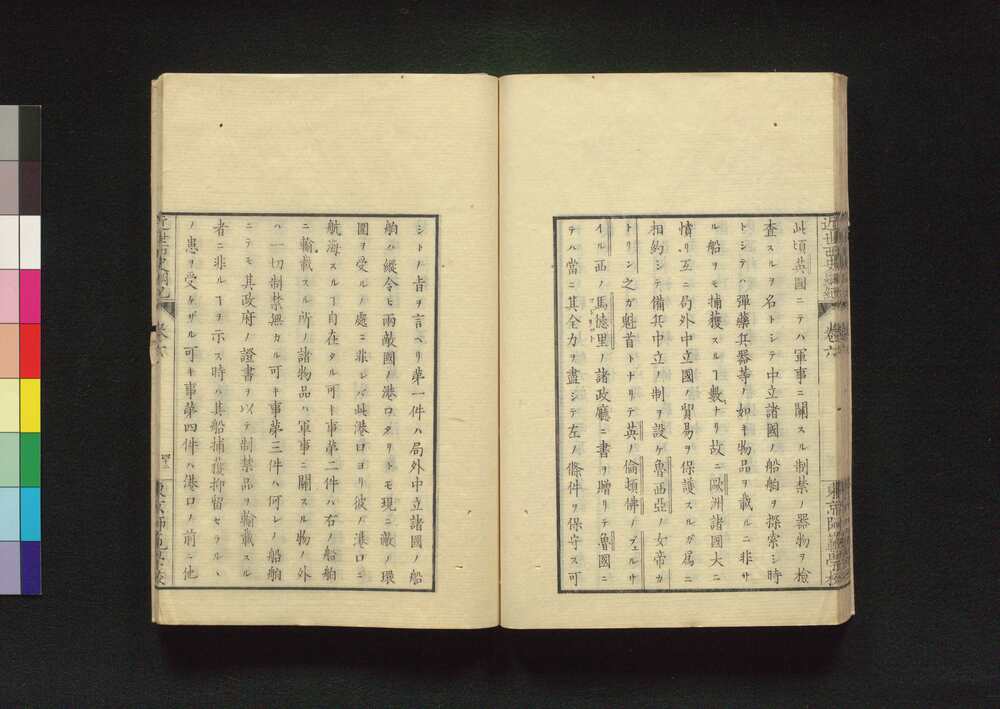 此頃英國ニテハ軍事ニ關スル制禁ノ器物ヲ檢
査スルヲ名トシテ中立諸國ノ船舶ヲ探索シ時
トシテハ彈藥兵器等ノ如キ物品ヲ載ルニ非サ
ル船ヲモ捕獲スルヿ數ナリ故ニ歐洲諸國大ニ
憤リ互ニ局外中立國ノ貿易ヲ保護スルガ爲ニ
相約シテ備兵中立ノ制ヲ設ケ魯西亞ノ女帝カ
トリン之ガ魁首トナリテ英ノ倫頓佛ノヴェルサ
イル西ノ馬德里ノ諸政廳ニ書ヲ贈リテ魯國ニ
テハ當ニ其全力ヲ盡シテ左ノ條件ヲ保守ス可
シトノ旨ヲ言ヘリ第一件ハ局外中立諸國ノ船
舶ハ縱令ヒ兩敵國ノ港口タリトモ現ニ敵ノ環
圍ヲ受クルノ處ニ非レバ此港口ヨリ彼ノ港口ニ
航海スルヿ自在タル可キ事第二件ハ右ノ船舶
ニ輸載スル所ノ諸物品ハ軍事ニ關スル物ノ外
ハ一切制禁無カル可キ事第三件ハ何レノ船舶
ニテモ其政府ノ證書ヲ以テ制禁品ヲ輸載スル
者ニ非ルヿヲ示ス時ハ其船捕獲抑留セラルヽ
ノ患ヲ受ケザル可キ事第四件ハ港口ノ前ニ他
卷六